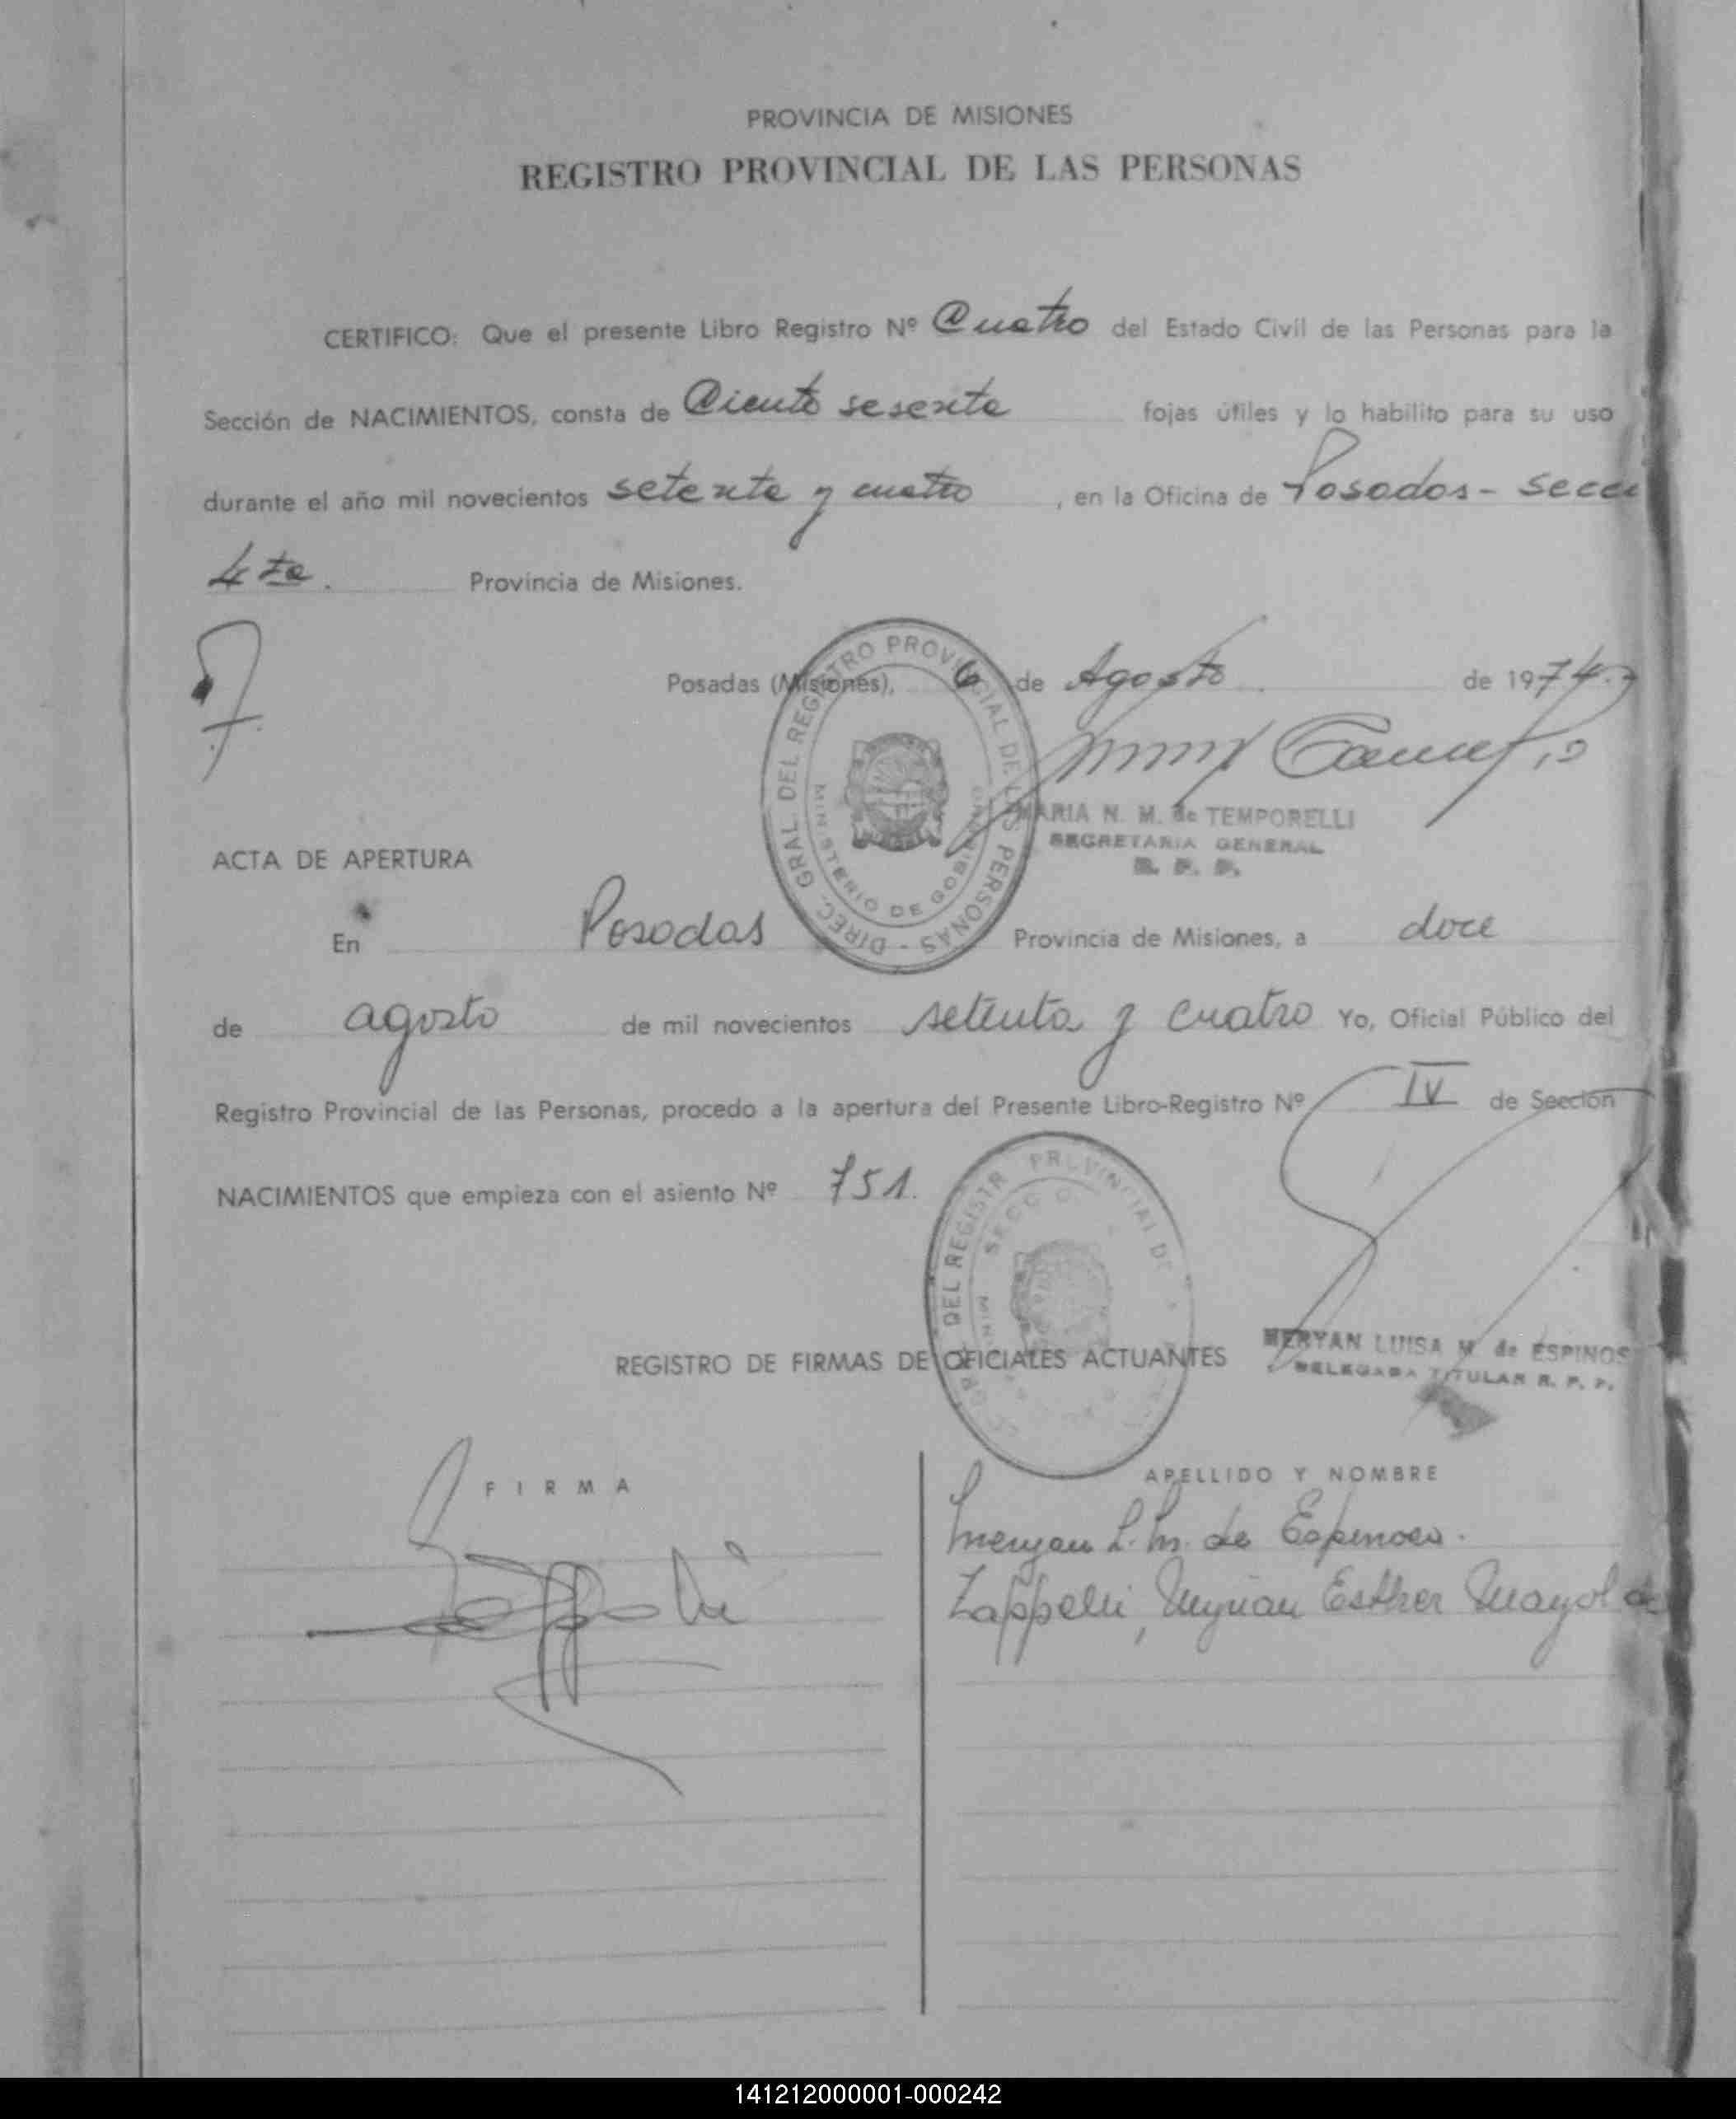 PROVINCIA DE MISIONES
REGISTRO PROVINCIAL DE LAS PERSONAS
CERTIFICO: Que el presente Libro Registro Nº Cuatro del Estado Civil de las Personas para la
Sección de NACIMIENTOS, consta de Ciento sesenta fojas útiles y lo habilito para su uso
durante el año mil novecientos setenta y cuatro, en la Oficina de Posadas - Secci
4ta. Provincia de Misiones.
Posadas (Misiones), 6 de Agosto de 1974.
DIREC. GRAL. DEL REGISTRO PROVINCIAL DE LAS PERSONAS -
MINISTERIO DE GOBIERNO
MARIA N. M. de TEMPORELLI
SECRETARIA GENERAL
R. P. P.
ACTA DE APERTURA
En Posadas Provincia de Misiones, a doce
de agosto de mil novecientos setenta y cuatro Yo, Oficial Público del
Registro Provincial de las Personas, procedo a la apertura del Presente Libro-Registro Nº IV de Sección
NACIMIENTOS que empieza con el asiento Nº 751.
DEL REGISTR PROVINCIAL DE
SECC
MERYAN LUISA M. de ESPINOS
DELEGADA TITULAR R. P. P.
REGISTRO DE FIRMAS DE OFICIALES ACTUANTES
FIRMA APELLIDO Y NOMBRE
Meryan L. M. de Espinosa.
Zappelli, Myrian Esther Mayol de
141212000001-000242